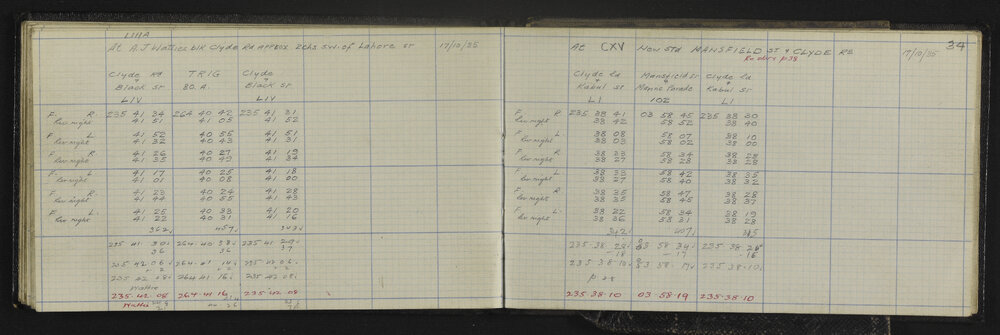 LIIIA
At A.J Watties blk Clyde Rd approx 2chs s.w. of Lahore st 17/10/35
Clyde Rd TRIG Clyde
+ +
Black st 80. A. Black st
LIV LIV
F. R. 235 41 34 264 40 42 235 41 31
Rev right 41 51 41 05 41 52
F. L 41 52 40 55 41 51
Rev right 41 32 40 43 41 31
F R 41 26 40 27 41 19
Rev right 41 35 40 49 41 34
F L 41 17 40 25 41 18
Rev right 41 01 40 08 41 00
F R 41 23 40 24 41 28
Rev right 41 44 40 55 41 43
F L 41 25 40 33 41 20
Rev right 41 22 40 31 41 16
362 457 343
235 41 30 264 40 38 235 41 29
36 36 37
235 42 06 264 41 14 235 42 06
2 2 2
235 42 08 264 41 16 235 42 08
Wattie
235.42.08 264 41 16 235.42.08
Wattie
34
At CXV New Std MANSFIELD St + CLYDE Rd 17/10/35
Re obs p38
Clyde rd Mansfield st Clyde rd
+ + +
Kabul st Manne Parade Kabul st
LI 102 LI
F. R 235 38 41 03 58 45 235 38 30
Rev right 38 42 58 52 38 40
F L 38 08 58 07 38 10
Rev right 38 03 58 02 38 00
F R 38 33 58 34 38 28
Rev right 38 27 58 28 38 28
F L 38 33 58 42 38 35
Rev right 38 27 58 40 38 32
F R 38 35 58 47 38 28
Rev right 38 35 58 45 38 37
F L. 38 22 58 34 38 19
Rev right 38 36 58 31 38 28
342 407 315
235 38 28 03 58 34 235 38 26
18 17 16
235 38 10 03 58 17 235 38.10.
p 38
235 38.10 03.58.19 235.38.10